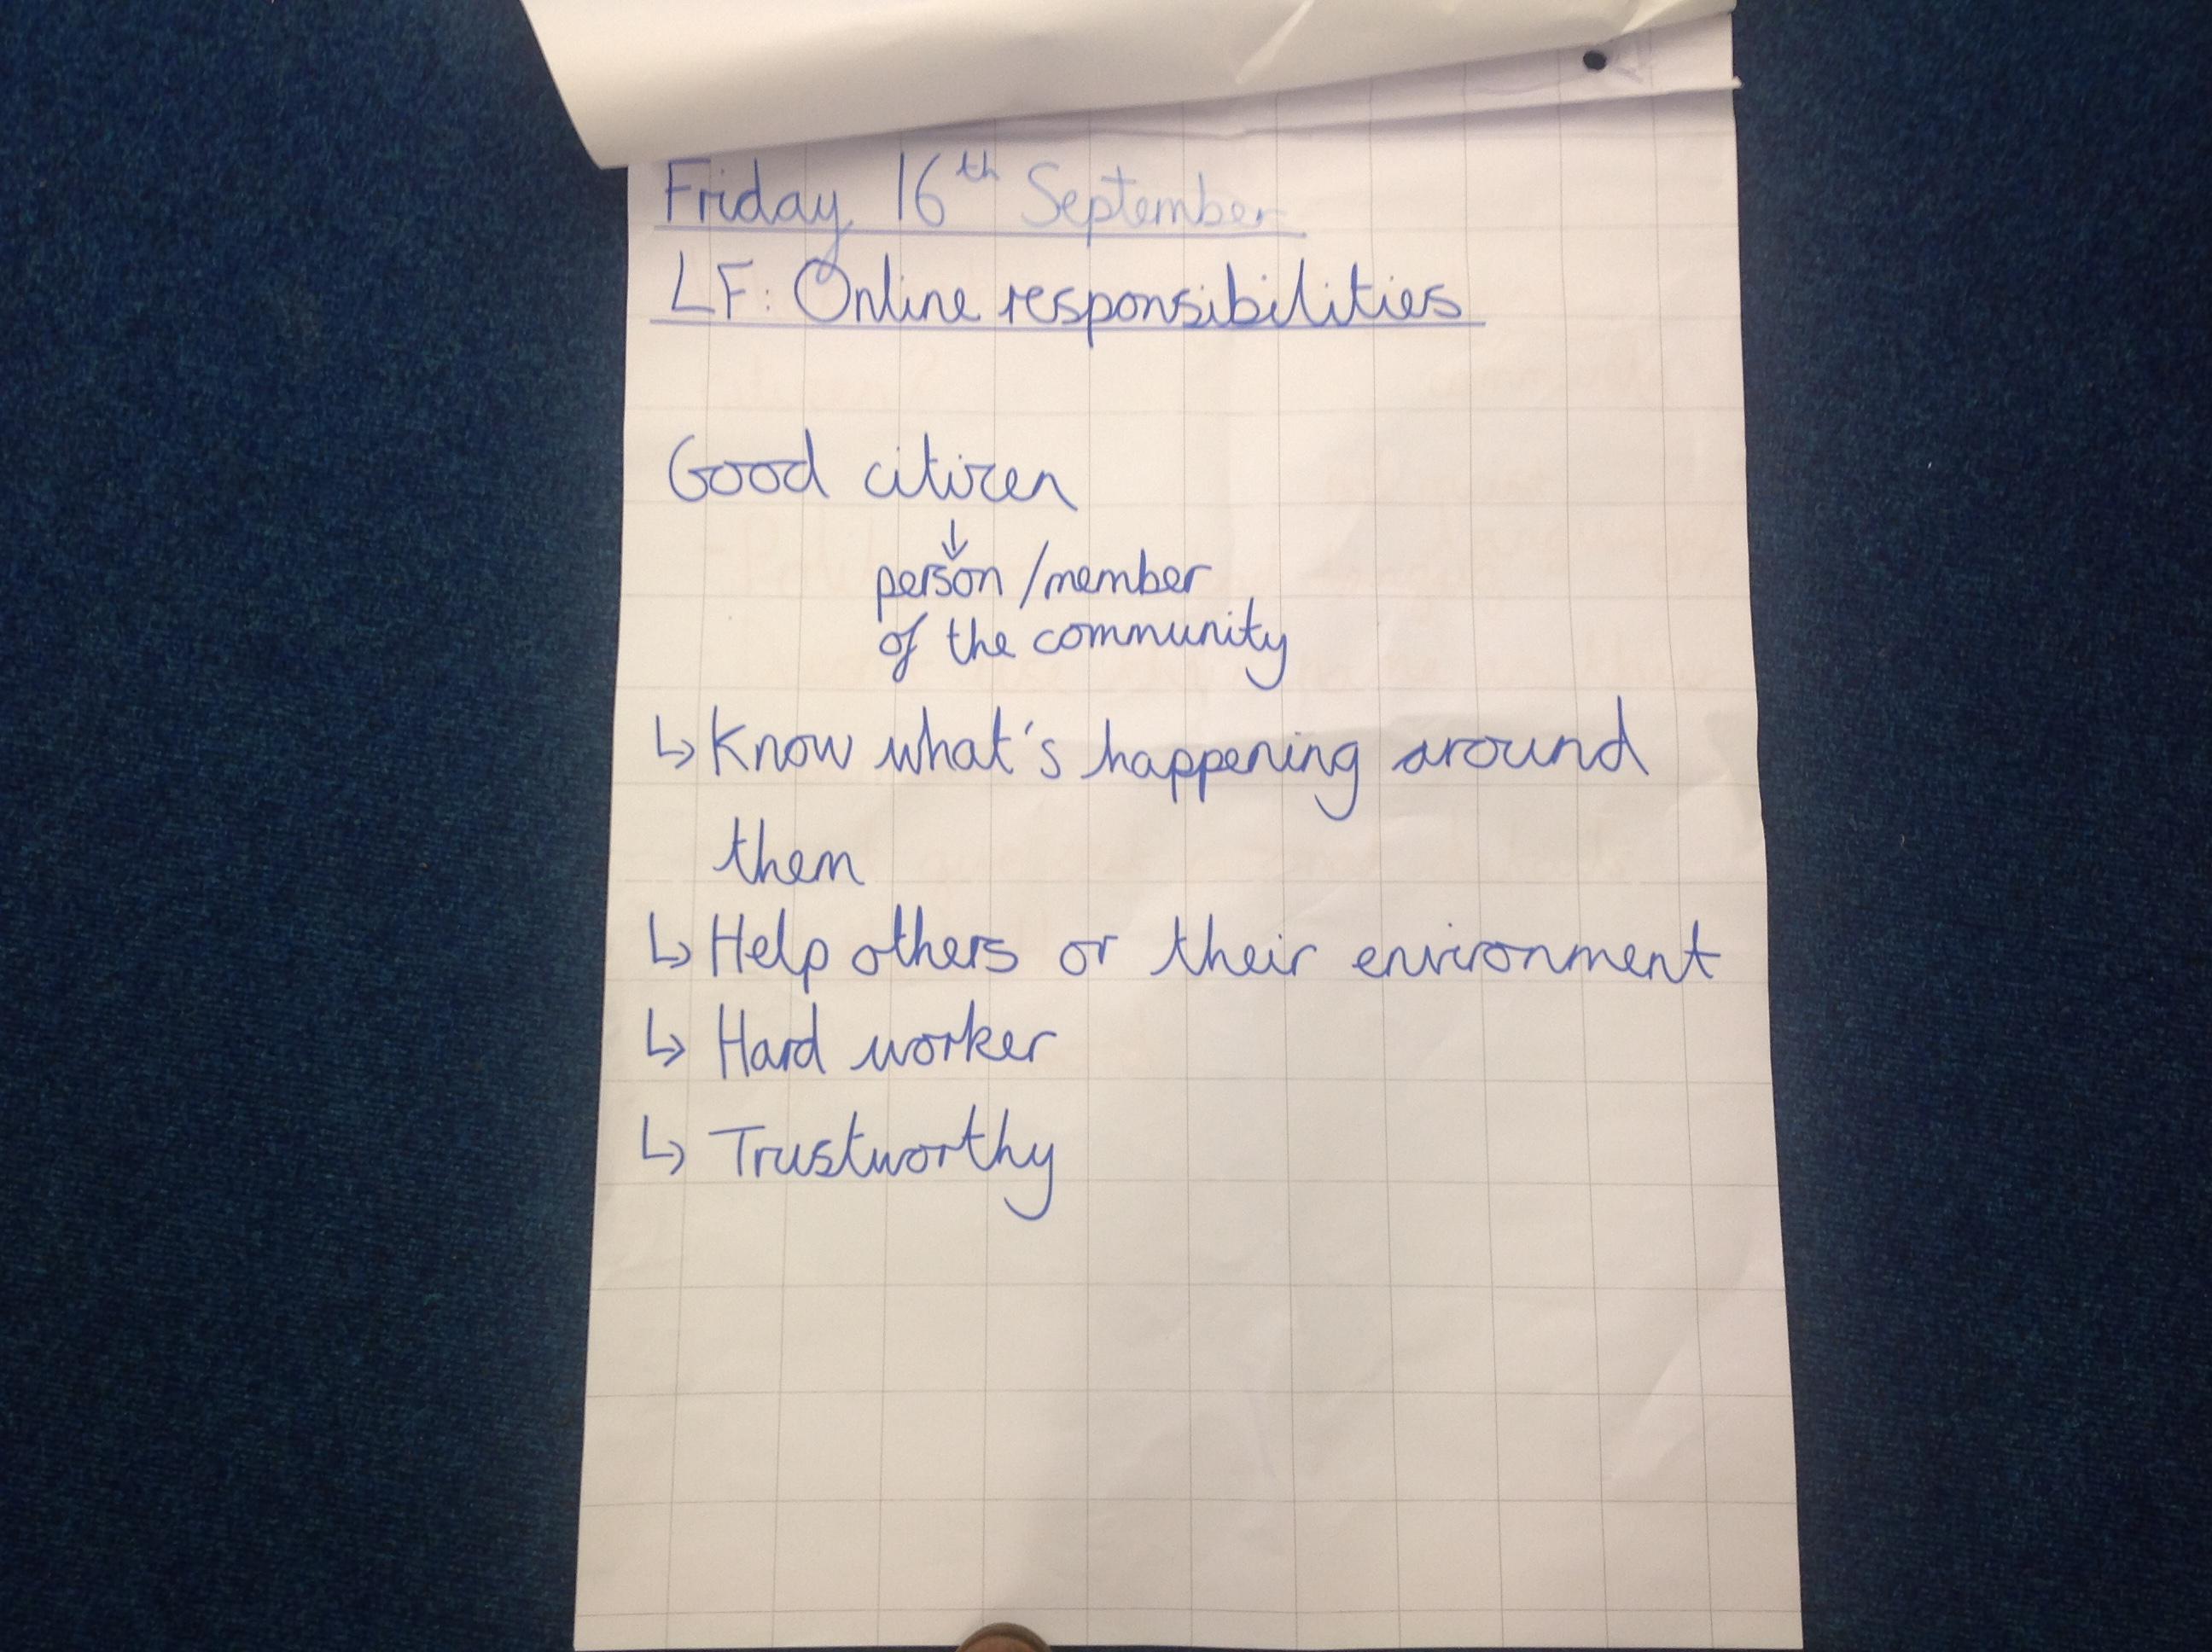 Friday 16th September
LF: Online responsibilities
Good citizen
↓
person/member
of the community
↳ Know what's happening around
them
↳ Help others or their environment
↳ Hard worker
↳ Trustworthy